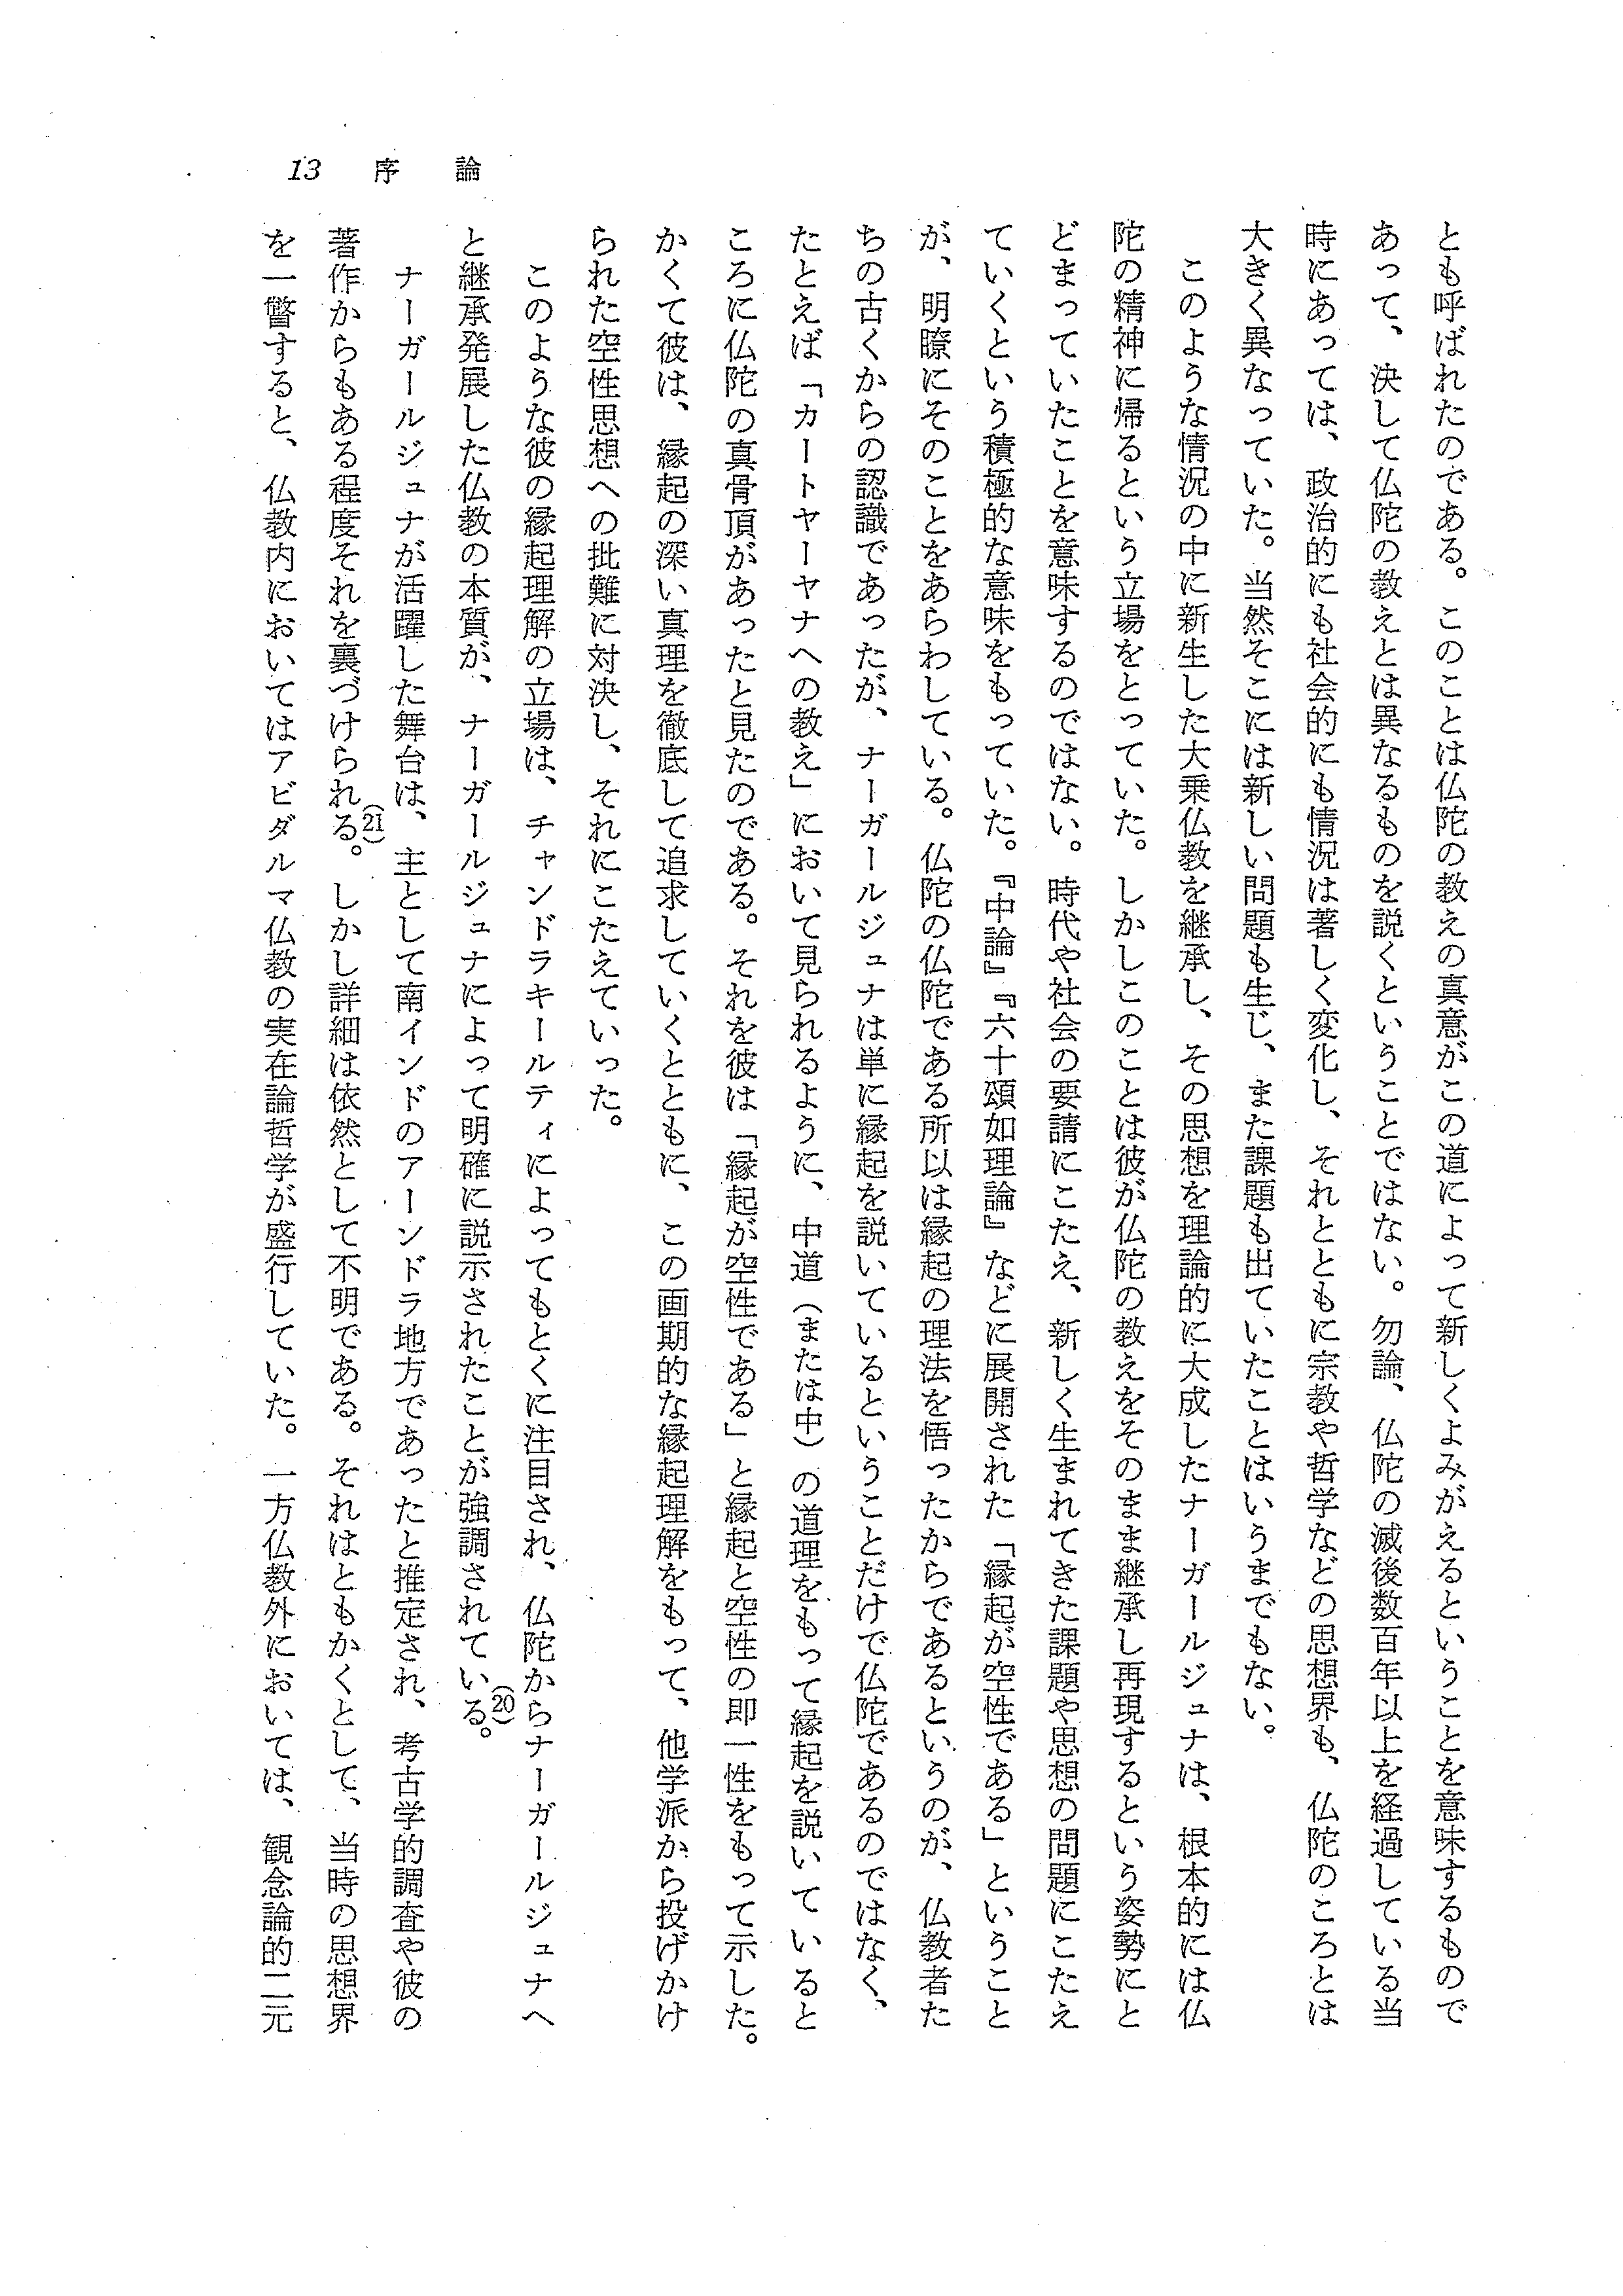 13 序 論
とも呼ばれたのである。このことは仏陀の教えの真意がこの道によって新しくよみがえるということを意味するもので
あって、決して仏陀の教えとは異なるものを説くということではない。勿論、仏陀の滅後数百年以上を経過している当
時にあっては、政治的にも社会的にも情況は著しく変化し、それとともに宗教や哲学などの思想界も、仏陀のころとは
大きく異なっていた。当然そこには新しい問題も生じ、また課題も出ていたことはいうまでもない。
このような情況の中に新生した大乗仏教を継承し、その思想を理論的に大成したナーガールジュナは、根本的には仏
陀の精神に帰るという立場をとっていた。しかしこのことは彼が仏陀の教えをそのまま継承し再現するという姿勢にと
どまっていたことを意味するのではない。時代や社会の要請にこたえ、新しく生まれてきた課題や思想の問題にこたえ
ていくという積極的な意味をもっていた。『中論』『六十頌如理論』などに展開された「縁起が空性である」ということ
が、明瞭にそのことをあらわしている。仏陀の仏陀である所以は縁起の理法を悟ったからであるというのが、仏教者た
ちの古くからの認識であったが、ナーガールジュナは単に縁起を説いているということだけで仏陀であるのではなく、
たとえば「カートヤーヤナへの教え」において見られるように、中道（または中）の道理をもって縁起を説いていると
ころに仏陀の真骨頂があったと見たのである。それを彼は「縁起が空性である」と縁起と空性の即一性をもって示した。
かくて彼は、縁起の深い真理を徹底して追求していくとともに、この画期的な縁起理解をもって、他学派から投げかけ
られた空性思想への批難に対決し、それにこたえていった。
このような彼の縁起理解の立場は、チャンドラキールティによってもとくに注目され、仏陀からナーガールジュナへ
と継承発展した仏教の本質が、ナーガールジュナによって明確に説示されたことが強調されている。(20)
ナーガールジュナが活躍した舞台は、主として南インドのアーンドラ地方であったと推定され、考古学的調査や彼の
著作からもある程度それを裏づけられる。(21)しかし詳細は依然として不明である。それはともかくとして、当時の思想界
を一瞥すると、仏教内においてはアビダルマ仏教の実在論哲学が盛行していた。一方仏教外においては、観念論的二元